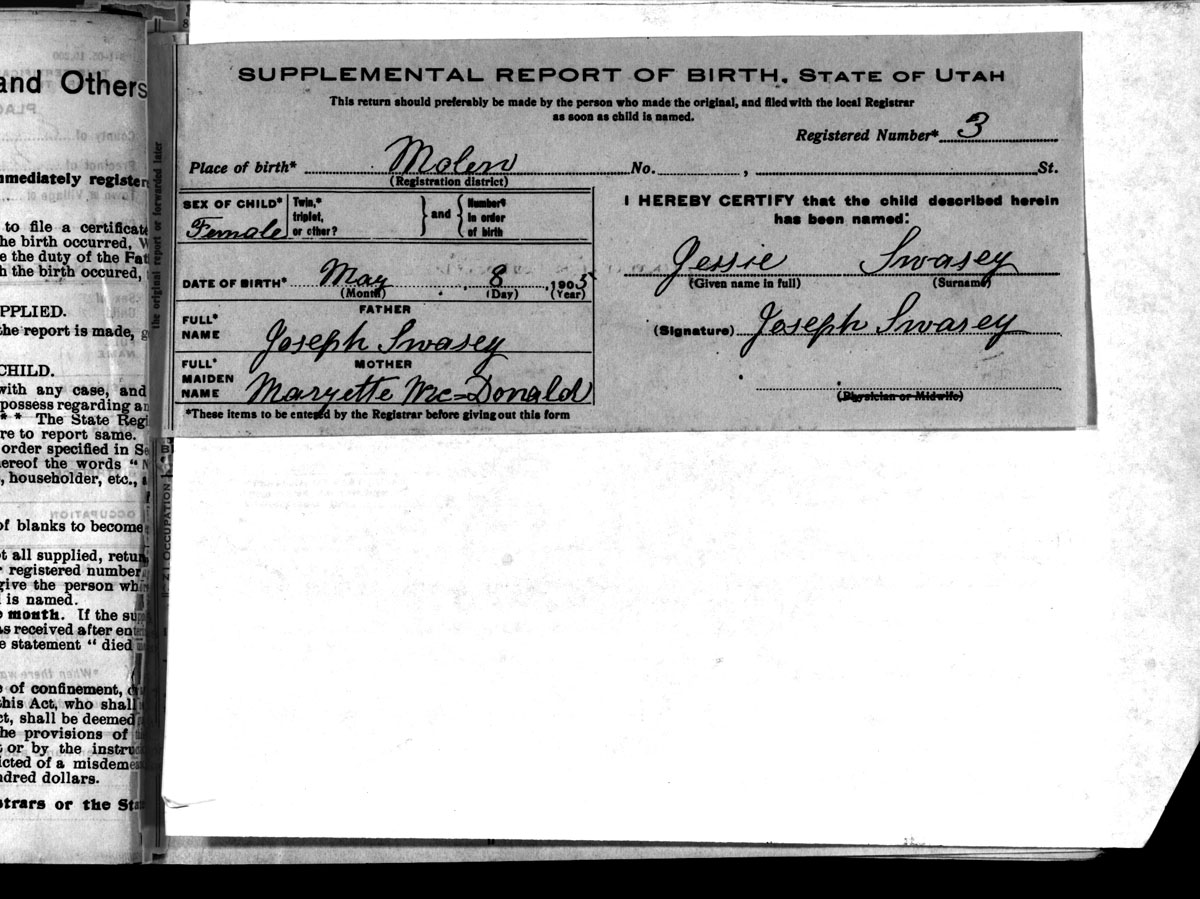 and Others
mmediately register
to file a certificate
he birth occurred,
e the duty of the Fat
h the birth occured,
PPLIED.
the report is made,
CHILD.
with any case, and
possess regarding an
* * The State Regi
re to report same.
order specified in Se
hereof the words "
, householder, etc.,
of blanks to become
t all supplied, retur
r registered number
give the person wh
is named.
month. If the su
as received after ent
e statement " died
e of confinement,
this Act, who shall
ct, shall be deemed
he provisions of
t or by the instruc
icted of a misdeme
ndred dollars.
strars or the Sta
the original report or forwarded later
OCCUPATION
SUPPLEMENTAL REPORT OF BIRTH, STATE OF UTAH
This return should preferably be made by the person who made the original, and filed with the local Registrar
as soon as child is named.
Registered Number* 3
Place of birth* Molen No. , St.
(Registration district)
SEX OF CHILD* Female
Twin,* triplet, or other?
and
Number* in order of birth
DATE OF BIRTH* May 8, 1905
(Month) (Day) (Year)
FATHER
FULL* NAME Joseph Swasey
MOTHER
FULL* MAIDEN NAME Maryette Mc=Donald
*These items to be entered by the Registrar before giving out this form
I HEREBY CERTIFY that the child described herein
has been named:
Jessie Swasey
(Given name in full) (Surname)
(Signature) Joseph Swasey
(Physician or Midwife)